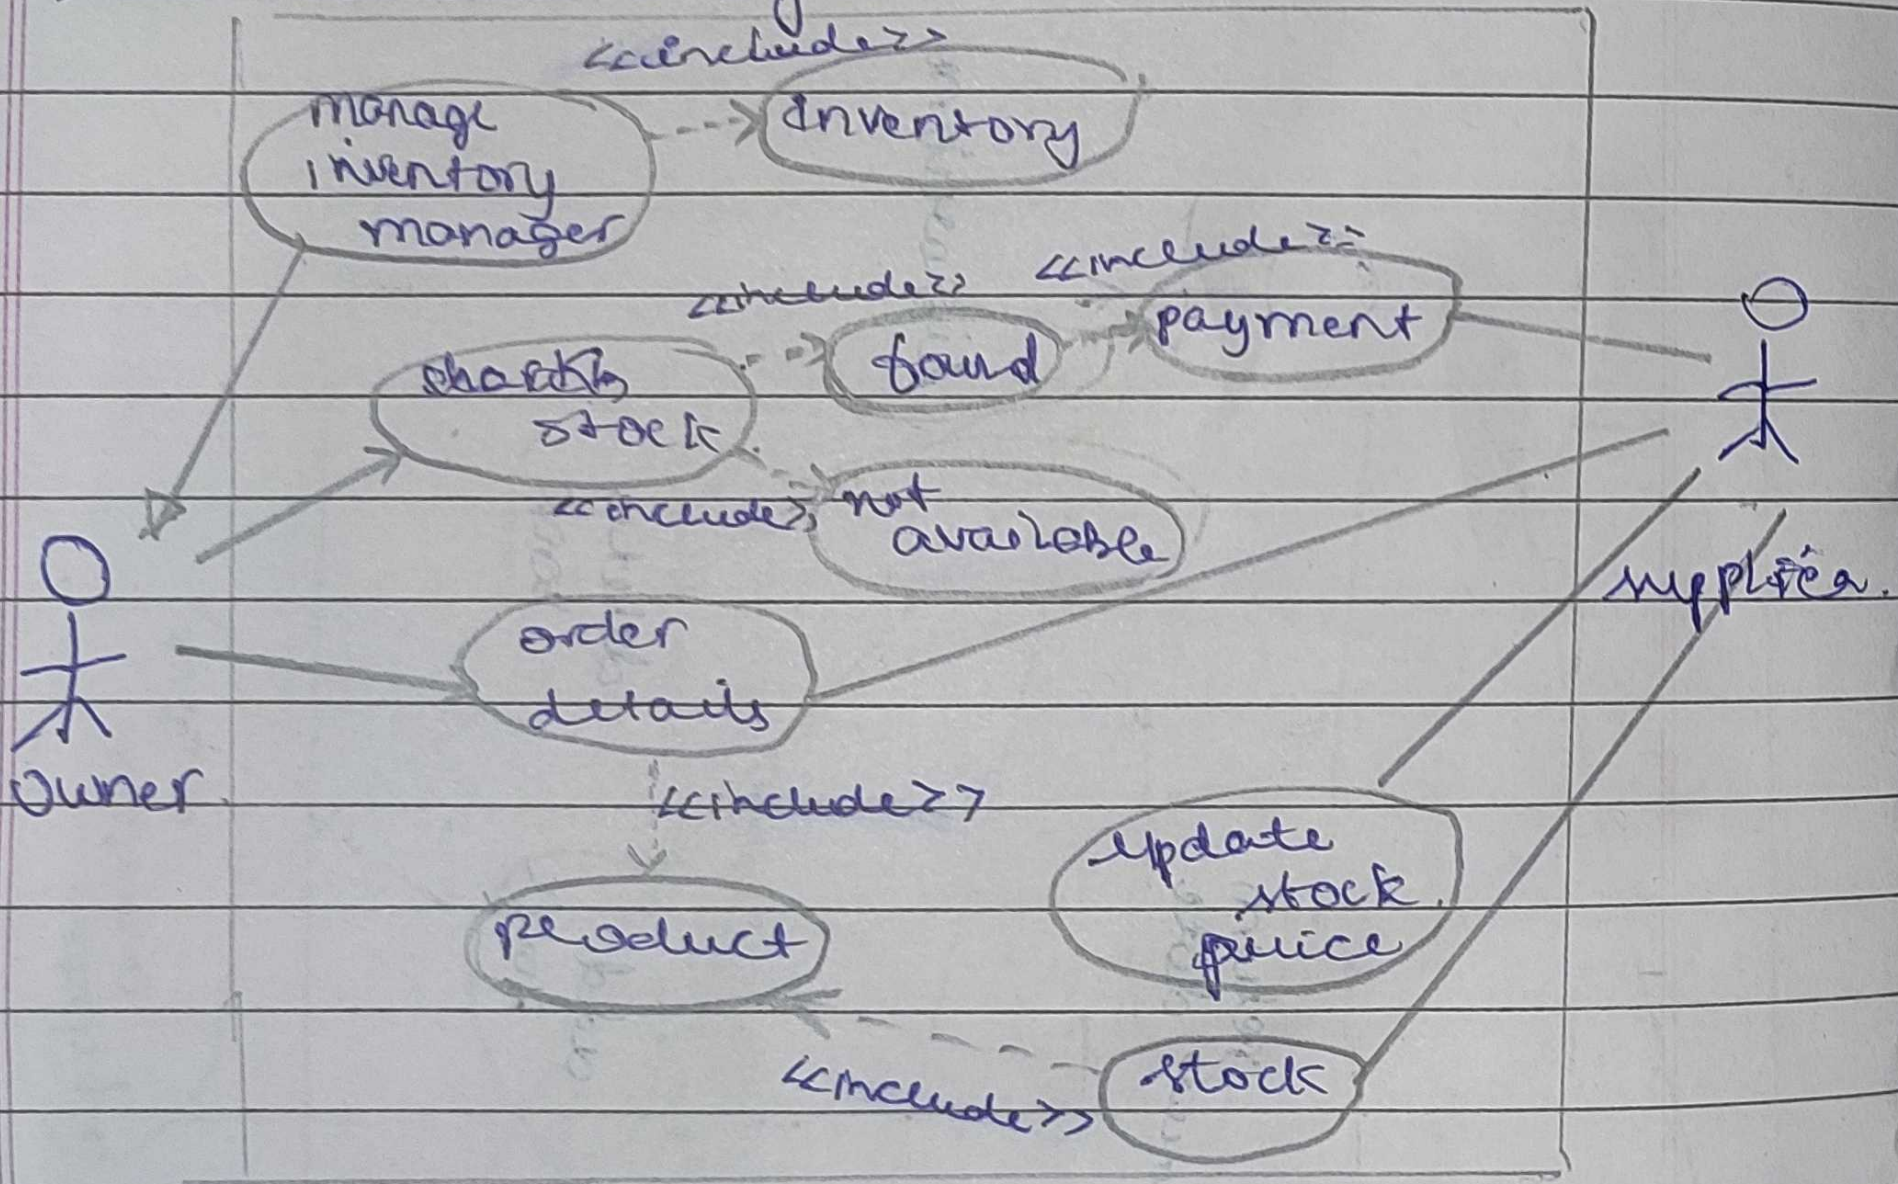 <<include>>
manage
inventory
manager
Inventory
<<include>>
<<include>>
payment
found
stock
<<include>>
not
available
supplier.
order
details
owner.
<<include>>
update
stock
price
product
stock
<<include>>